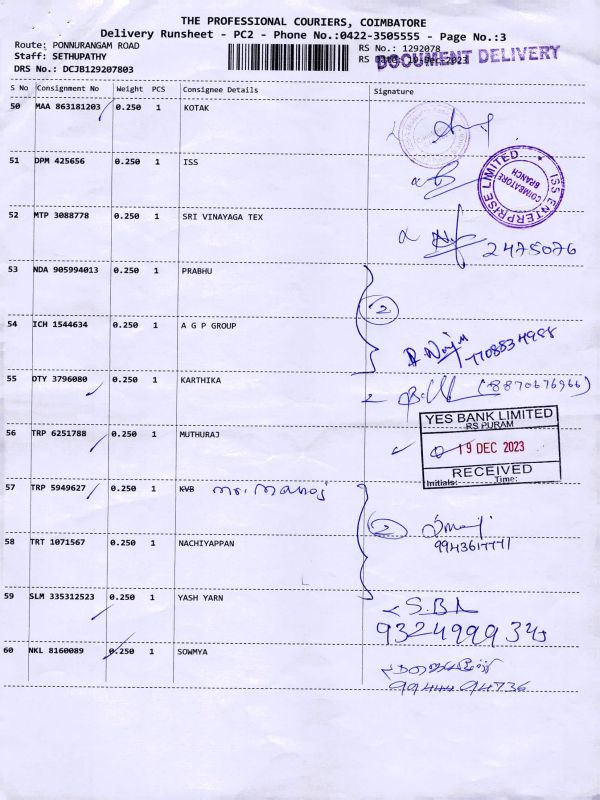 THE PROFESSIONAL COURIERS, COIMBATORE
Delivery Runsheet - PC2 - Phone No.:0422-3505555 - Page No.:3
Route: PONNURANGAM ROAD
Staff: SETHUPATHY
DRS No.: DCJB129207803
RS No.: 1292078
RS Date: 19-Dec-2023
DOCUMENT DELIVERY
S No Consignment No Weight PCS Consignee Details Signature
50 MAA 863181203 0.250 1 KOTAK
51 DPM 425656 0.250 1 ISS
ISS ENTERPRISE LIMITED
COIMBATORE
BRANCH
52 MTP 3088778 0.250 1 SRI VINAYAGA TEX
2475076
53 NDA 905994013 0.250 1 PRABHU
2
54 ICH 1544634 0.250 1 A G P GROUP
7708834988
55 OTY 3796080 0.250 1 KARTHIKA
(8870676966)
56 TRP 6251788 0.250 1 MUTHURAJ
YES BANK LIMITED
RS PURAM
19 DEC 2023
RECEIVED
Initials: Time:
57 TRP 5949627 0.250 1 KVB Mr. Manoj
2
58 TRT 1071567 0.250 1 NACHIYAPPAN
59 SLM 335312523 0.250 1 YASH YARN
60 NKL 8160089 0.250 1 SOWMYA